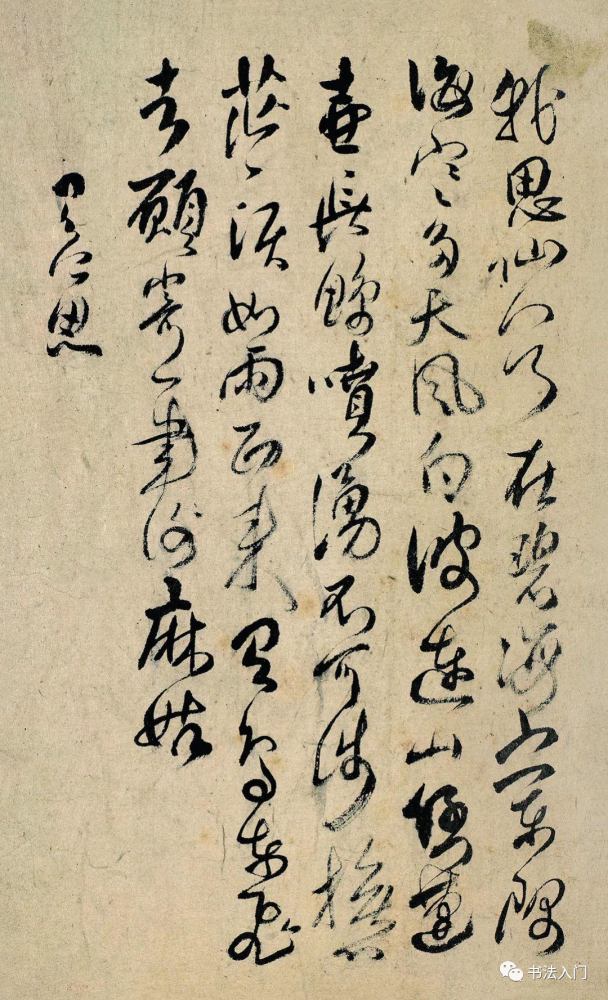 我思仙人乃在碧海之東隅
海寒多天風白波連山倒蓬
壺長鯨噴湧不可涉撫心
茫〻淚如雨西來青鳥東飛
去願寄一書謝麻姑
有所思
书法入门